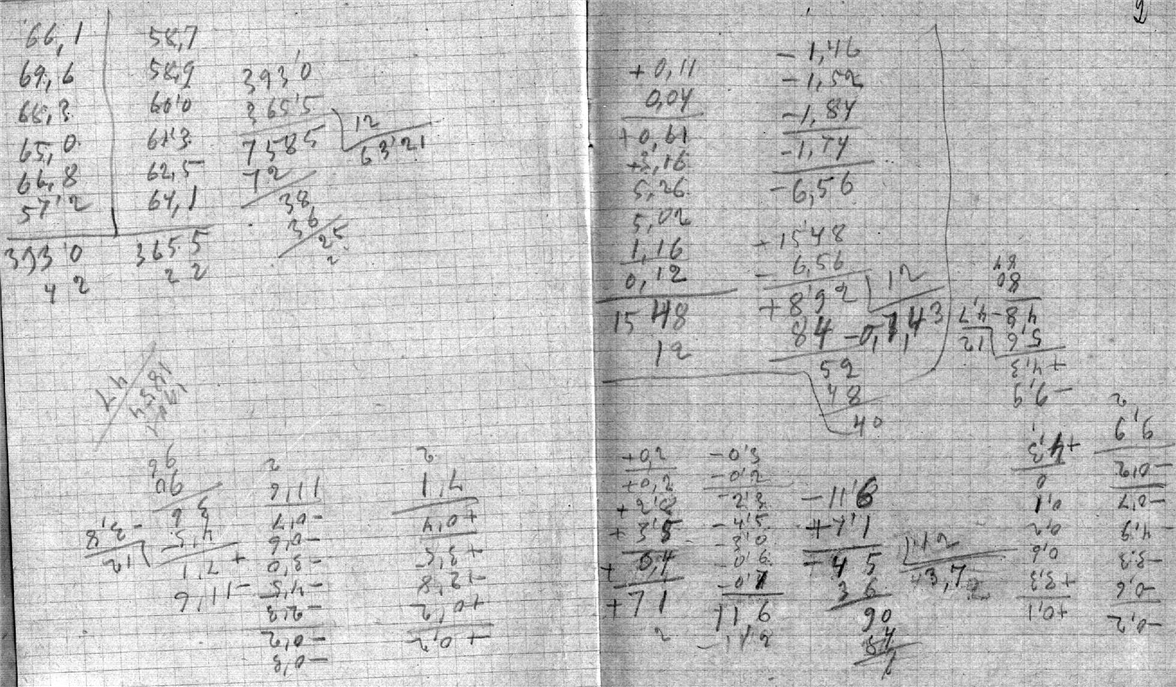 66,1
69,6
66,3
65,0
66,8
57'2
393'0
4 2
58,7
58,9
60'0
61'3
62,5
64,1
365 5
2 2
393'0
365'5
7585
12
63'21
72
38
36
25
2
9
+0,11
0,04
+0,61
+3,16
5,26
5,02
1,16
0,12
15 48
12
-1,46
-1,52
-1,84
-1,74
-6,56
+1548
- 6,56
+8'92
12
84
-0,7,43
59
48
40
80
48
-4,7
5'6
12
+4,3
-9,9
+0,2
+0,2
+2'8
+3'5
+0,4
+71
2
-0'3
-0'2
-2'3
-4'5
-3'0
-0'6
-0'7
11,6
-11'6
+7'1
-45
12
36
90
84
6
+4,3
0
0,1
0,2
0,6
+3,3
+0,1
2
9,9
-0,2
-0,7
4,9
-3,3
-0,6
-0,2
96
90
36
-3,8
4,5
12
+7,1
-11,6
2
11,6
-0,7
-0,6
-3,0
-4,5
-2,3
-0,2
-0,3
2
7,1
+0,4
+3,5
+2,8
+0,2
+0,2